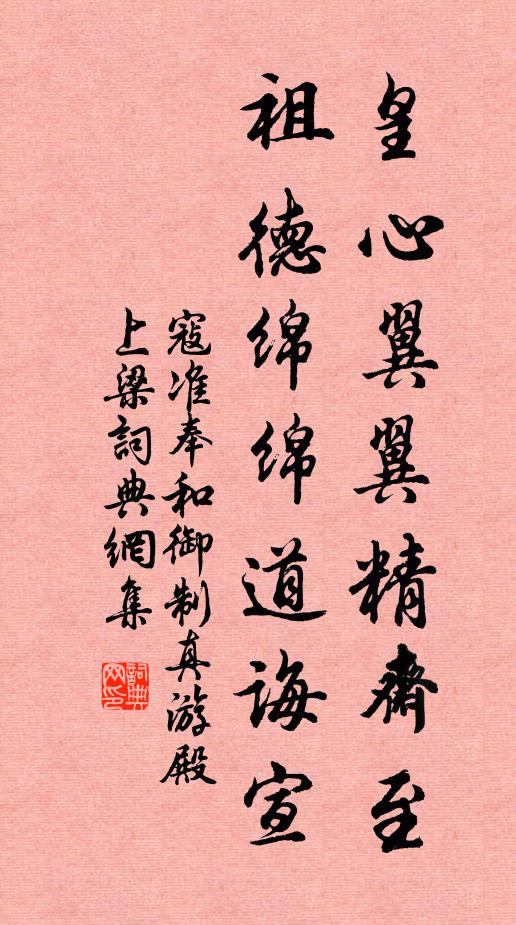 皇心翼翼精齊至
祖德绵绵道诲宣
寇准奉和御制真游殿
上梁詞典網集
詞典
网印